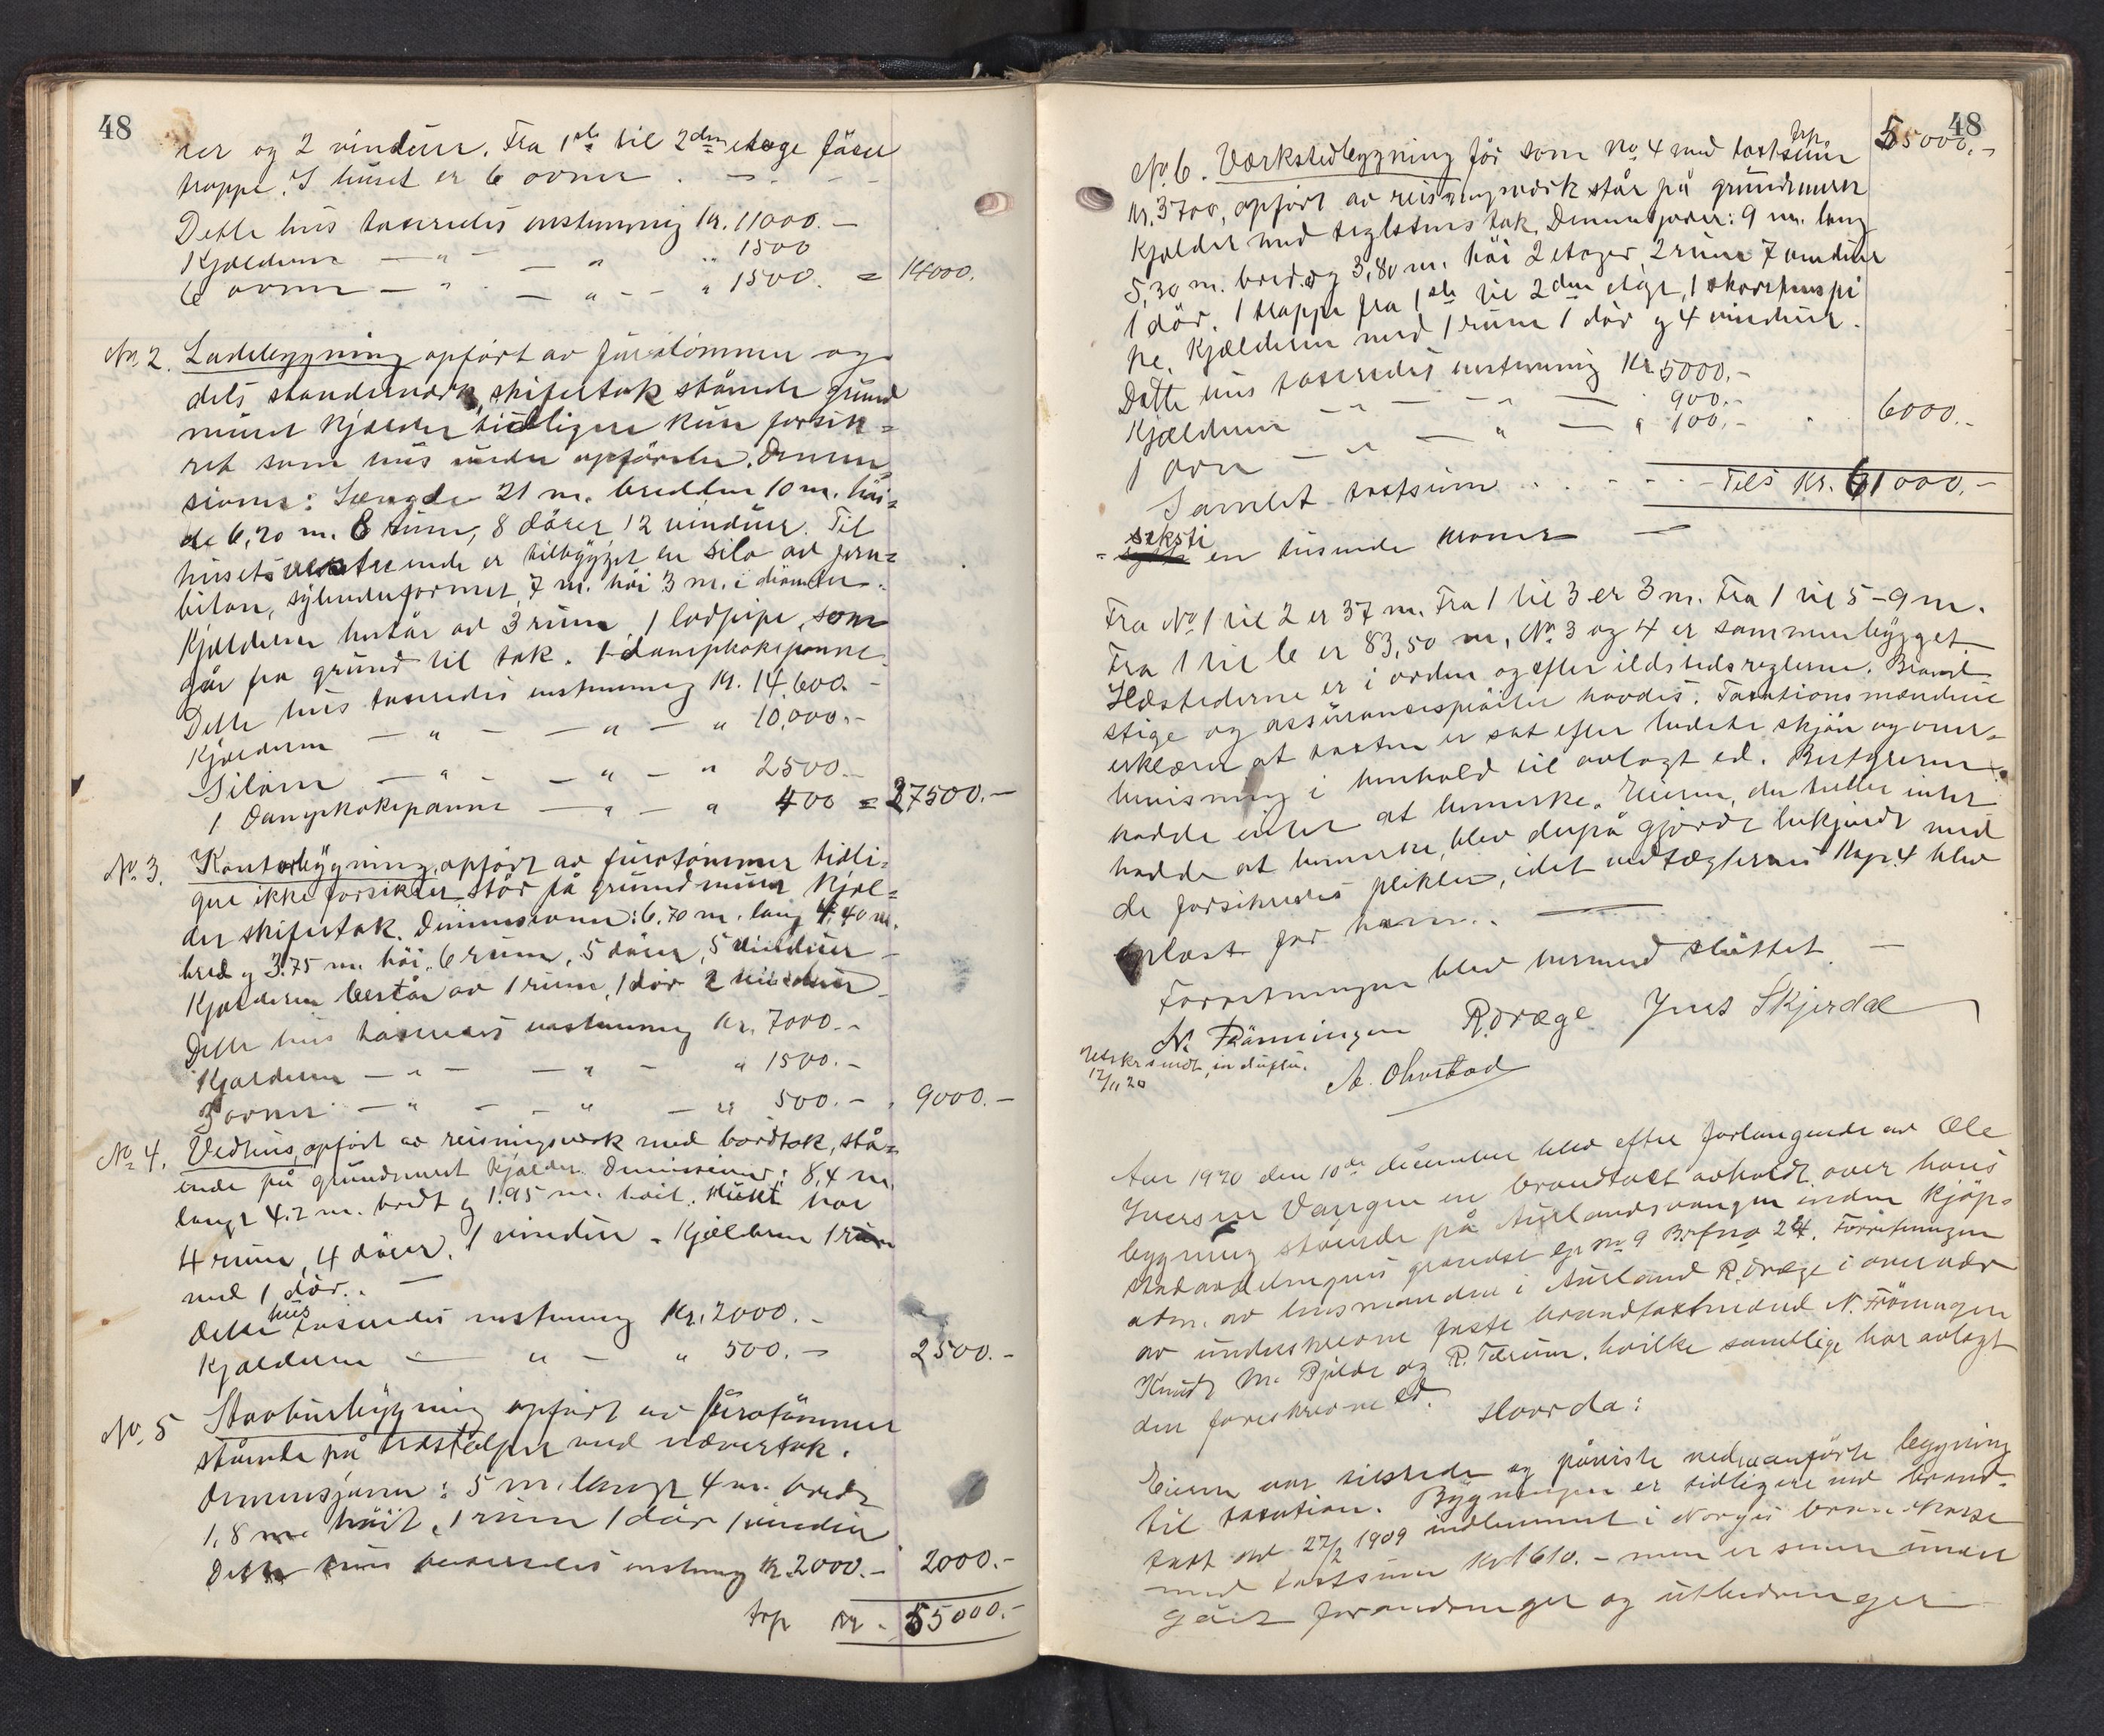 48
rer og 2 vinduer. Fra 1ste til 2den etage fører
trappe. I huset er 6 ovner . — . — —
Dette hus taxeredes enstemmig Kr. 11000.—
Kjælderen — „ — — „ „ 1500
6 ovner — „ — — „ — — „ 1500. = 14000.
No. 2. Ladebygning opført av furutømmer og
dels standerværk, skifertak stående grund
muret kjælder tidligere kun forsik=
ret som hus under opførelse. Dimen
sioner: Længde 21 m. bredden 10 m. høi=
de 6,20 m. 8 rum, 8 dører 12 vinduer. Til
husets vestre ende er tilbygget en silo av jern=
beton, sylinderformet, 7 m. høi 3 m. i diameter.
Kjælderen består av 3 rum, 1 lodpipe, som
går fra grund til tak. 1 dampkokepanne.
Dette hus taxeredes enstemmig Kr. 14,600.—
Kjælderen — „ — — „ — „ 10,000.—
Siloen — „ - — „ — „ 2500.—
1 Dampkokepanne — „ — „ 400 = 27500.—
No. 3. Kontorbygning, opført av furutømmer tidli=
gere ikke forsikret står på grundmuret kjæl=
der skifertak. Dimensioner: 6.70 m. lang 4.40 m.
bred og 3.75 m. høi. 6 rum, 5 dører, 5 vinduer —
Kjælderen består av 1 rum, 1 dør 2 vinduer
Dette hus taxeredes enstemmig Kr. 7000.—
Kjælderen — „ — — „ — „ 1500.—
3 ovner — „ — — „ — „ 500.— „ 9000.—
No 4. Vedhus, opført av reisningsverk med bordtak, stå=
ende på grundmuret kjælder. Dimensioner: 8,4 m.
langt 4.2 m. bredt og 1.95 m. høit. Huset har
4 rum, 4 dører, 1 vindu. Kjælderen 1 rum
med 1 dør. . —
hus
Dette taxeredes enstemmig Kr. 2000.—
Kjælderen — „ — „ 500.— 2500.—
No. 5 Stavbursbygning opført av furutømmer
stående på træstolper med nævertak.
Dimensjoner: 5 m. langt 4 m. bredt
1,8 m høit, 1 rum 1 dør 1 vindu
Dette hus taxeredes enstemmig Kr. 2000.— 2000.—
trp Kr. 55000.—
48
trp. 55000.—
No. 6. Værkstedbygning før som No 4 med takstsum
Kr. 3700, opført av reisningsverk står på grundmuret
kjælder med teglstens tak. Dimensjoner: 9 m. lang
5,30 m. bred og 3,80 m. høi 2 etager, 2 rum 7 vinduer
1 dør. 1 trappe fra 1ste til 2den etage, 1 skorstenspi
pe. Kjælderen med 1 rum 1 dør og 4 vinduer.
Dette hus taxeredes enstemmig Kr 5000.—
Kjælderen — „ — „ — 900.—
1 ovn — „ — „ — „ 100.— 6000.—
Samlet takstsum . . - - - Tils Kr. 61000.—
seksti
= en tusende kroner —
Fra No 1 til 2 er 37 m. Fra 1 til 3 er 3 m. Fra 1 til 5 - 9 m.
Fra 1 til 6 er 83,50 m, No. 3 og 4 er sammenbygget.
Ildstederne er i orden og efter ildstedsreglerne. Brand
stige og assurancesprøite havdes. Taxationsmændene
erklærer at taxten er sat efter bedste skjøn og over=
bevisning i henhold til avlagt ed. Bestyreren
hadde intet at bemerke. Eieren, der heller intet
hadde at bemerke, blev derpå gjort bekjendt med
de forsikredes plikter, idet vedtægternes Kap. 4 blev
oplæst for ham. . —
Forretningen blev hermed sluttet. —
N. Frønningen R. Dræge Jens Skjerdal
Utskr sendt in duplo.
12/11 20
A. Ohnstad
Aar 1920 den 10de december blev efter forlangende av Ole
Iversen Vangen en brandtaxt avholdt over hans
bygning stående på Aurlandsvangen inden kjøp=
stadavdelingens grænser g. no 9 Br. no 24. Forretningen
adm. av lensmanden i Aurland R. Dræge i overvær
av underskrevne faste brandtaxtmænd N. Frønningen
Knudt M. Bjelde og R. Tærum, hvilke samtlige har avlagt
den foreskrevne ed. Hvorda:
Eieren var tilstede og påviste nedenanførte bygning
til taxation. Bygningen er tidligere ved brand=
taxt av 27/2 1909 indlemmet i Norges brandkasse
med taxtsum Kr 1610.— men er senere under
gåt forandringer og utbedringer